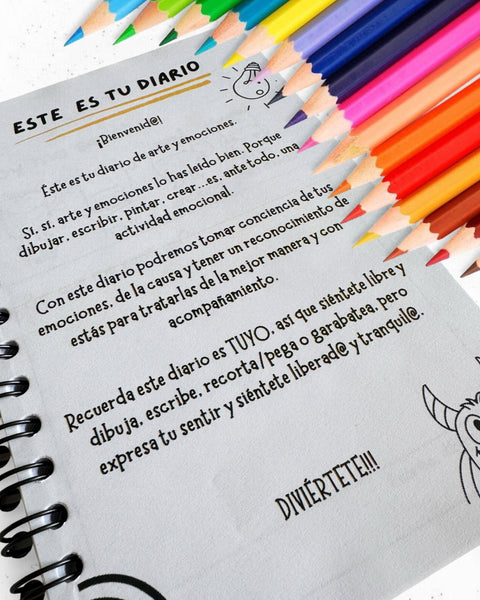 ESTE ES TU DIARIO
¡Bienvenid@!
Éste es tu diario de arte y emociones.
Sí, sí, arte y emociones lo has leído bien. Porque
dibujar, escribir, pintar, crear...es, ante todo, una
actividad emocional.
Con este diario podremos tomar conciencia de tus
emociones, de la causa y tener un reconocimiento de
estás para tratarlas de la mejor manera y con
acompañamiento.
Recuerda este diario es TUYO, así que siéntete libre y
dibuja, escribe, recorta/pega o garabatea, pero
expresa tu sentir y siéntete liberad@ y tranquil@.
DIVIÉRTETE!!!